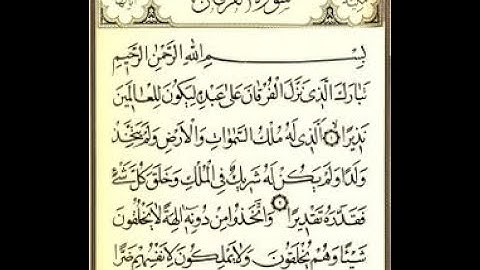 سورة الفرقان
بِسْمِ اللهِ الرَّحْمٰنِ الرَّحِيمِ
تَبَارَكَ الَّذِى نَزَّلَ الْفُرْقَانَ عَلٰى عَبْدِهِ لِيَكُونَ لِلْعَالَمِينَ
نَذِيرًا ۝١ اَلَّذِى لَهُ مُلْكُ السَّمٰوَاتِ وَالْاَرْضِ وَلَمْ يَتَّخِذْ
وَلَدًا وَلَمْ يَكُنْ لَهُ شَرِيكٌ فِى الْمُلْكِ وَخَلَقَ كُلَّ شَىْءٍ
فَقَدَّرَهُ تَقْدِيرًا ۝٢ وَاتَّخَذُوا مِنْ دُونِهِ اٰلِهَةً لَا يَخْلُقُونَ
شَيْئًا وَهُمْ يُخْلَقُونَ وَلَا يَمْلِكُونَ لِاَنْفُسِهِمْ ضَرًّا